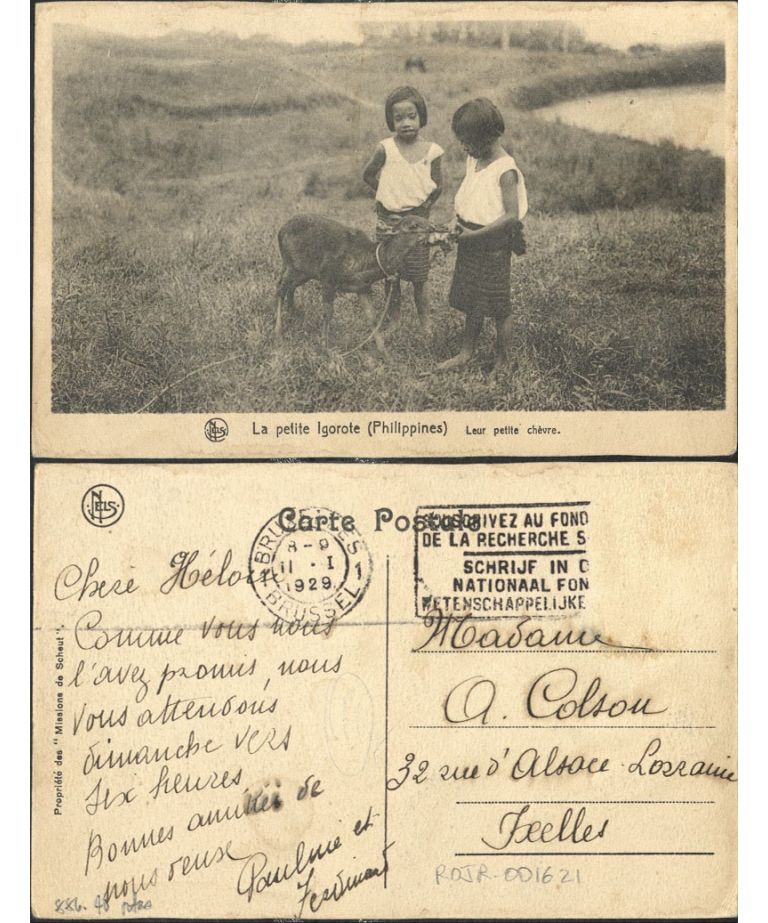 NELS
La petite Igorote (Philippines) Leur petite chèvre.
NELS
Carte Postale
BRUXELLES 1
8-9
11 . I
1929
BRUSSEL
SOUSCRIVEZ AU FOND
DE LA RECHERCHE S
SCHRIJF IN D
NATIONAAL FON
WETENSCHAPPELIJKE
Chère Héloïse
Comme vous nous
l'avez promis, nous
vous attendons
dimanche vers
six heures
Bonnes amitiés de
nous deux
Pauline et
Ferdinand
Madame
A. Colson
32 rue d'Alsace-Lorraine
Ixelles
Propriété des "Missions de Scheut".
ROJR-001621